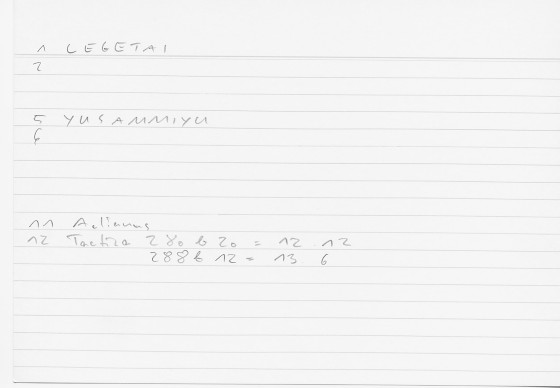 1 LEGETAI
2
5 YUSAMMIYU
6
11 Aelianus
12 Tactica 280 b 20 = 12 12
288 b 12 = 13 6